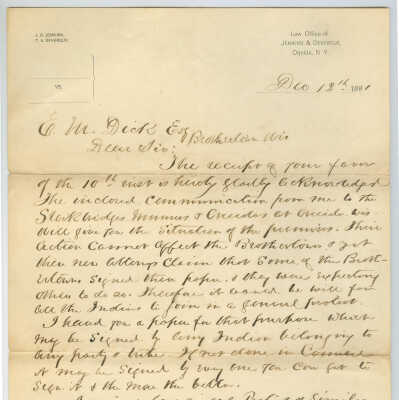 J. D. JENKINS,
T. A. DEVEREUX
Law Office of
JENKINS & DEVEREUX
Oneida, N.Y.
VS.
Dec 12th 1891
E. M. Dick Esq
Brothertown Wis
Dear Sir:
The receipt of your favor
of the 10th inst is hereby gladly acknowledged
The inclosed communication from me to the
Stockbridges Munsies & Oneidas at Oneida Wis
will give you the situation of the premises. Their
action cannot affect the Brothertowns & yet
their attorneys claim that some of the Broth-
ertowns signed their paper & they were expecting
others to do so. Therefore it would be well for
all the Indians to join in a general protest.
I hand you a paper for that purpose which
may be signed by any Indian belonging to
any party & tribe. If not done in Council
it may be signed by any one you can get to
sign it & the more the better.